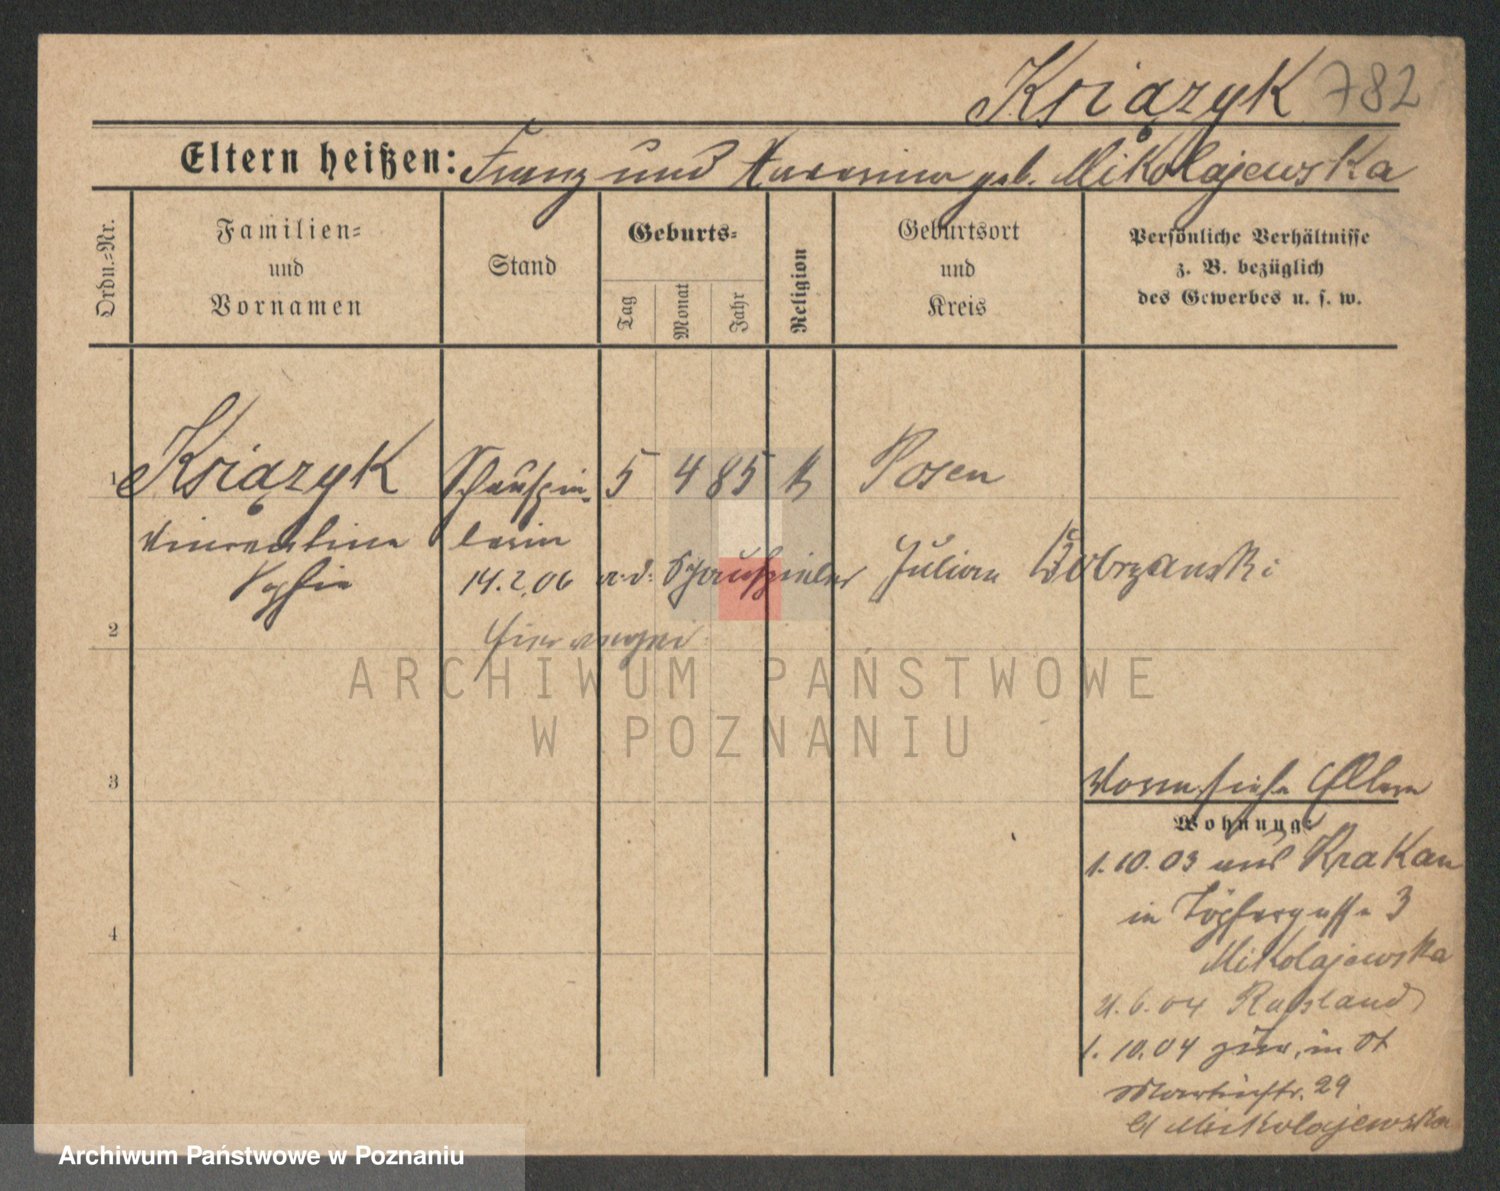 Książyk 782
Eltern heißen: Franz und geb. Mikolajewska
Ordn.-Nr.
Familien-
und
Vornamen
Stand
Geburts-
Tag
Monat
Jahr
Religion
Geburtsort
und
Kreis
Persönliche Verhältnisse
z. B. bezüglich
des Gewerbes u. s. w.
1 Książyk Schauspie- 5 4 85 k Posen
Vincentina lerin
Sophie 14.2.06 Schauspieler Julian Dobrzanski
2
hier
ARCHIWUM PAŃSTWOWE
W POZNANIU
3
Vorm. siehe Eltern
Wohnung:
1.10.03 aus Krakau
in Töpfergasse 3
4
Mikolajewska
6.04 Russland
1.10.04 zur. in
Martinstr. 29
Mikolajewska
Archiwum Państwowe w Poznaniu